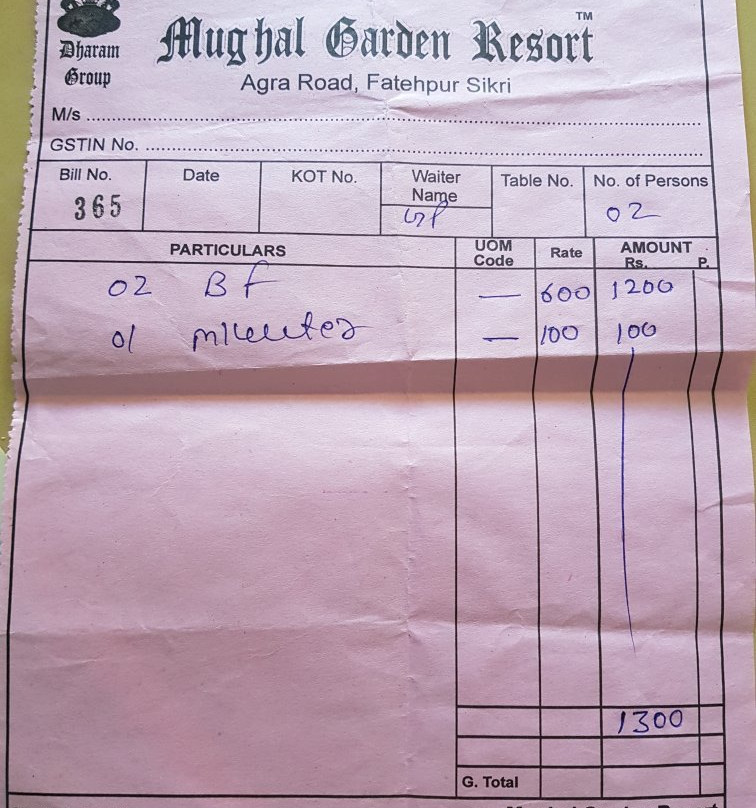 TM
Dharam Group
Mughal Garden Resort
Agra Road, Fatehpur Sikri
M/s
GSTIN No.
Bill No. Date KOT No. Waiter Name Table No. No. of Persons
365 02
PARTICULARS UOM Code Rate AMOUNT Rs. P.
02 BF — 600 1200
01 — 100 100
1300
G. Total